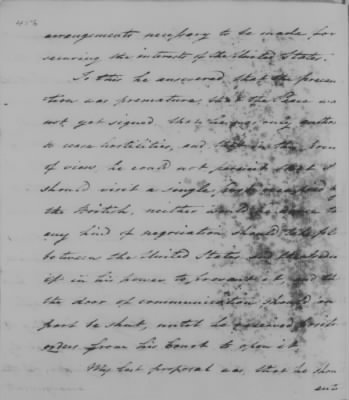 456
arrangements necessary to be made for
securing the interests of the United States.
To this he answered, that the preven
tion was premature, that the Peace was
not yet signed, that he was only autho
to cease hostilities, and that in this
of view, he could not permit that I
should visit a single
the British, neither would he
any kind of negociation should take pl
between the United States, and
if in his power to prevent it, and that
the door of communication should on
part be shut, until he received posit
orders from his Court to open it.
My last proposal was, that he shou